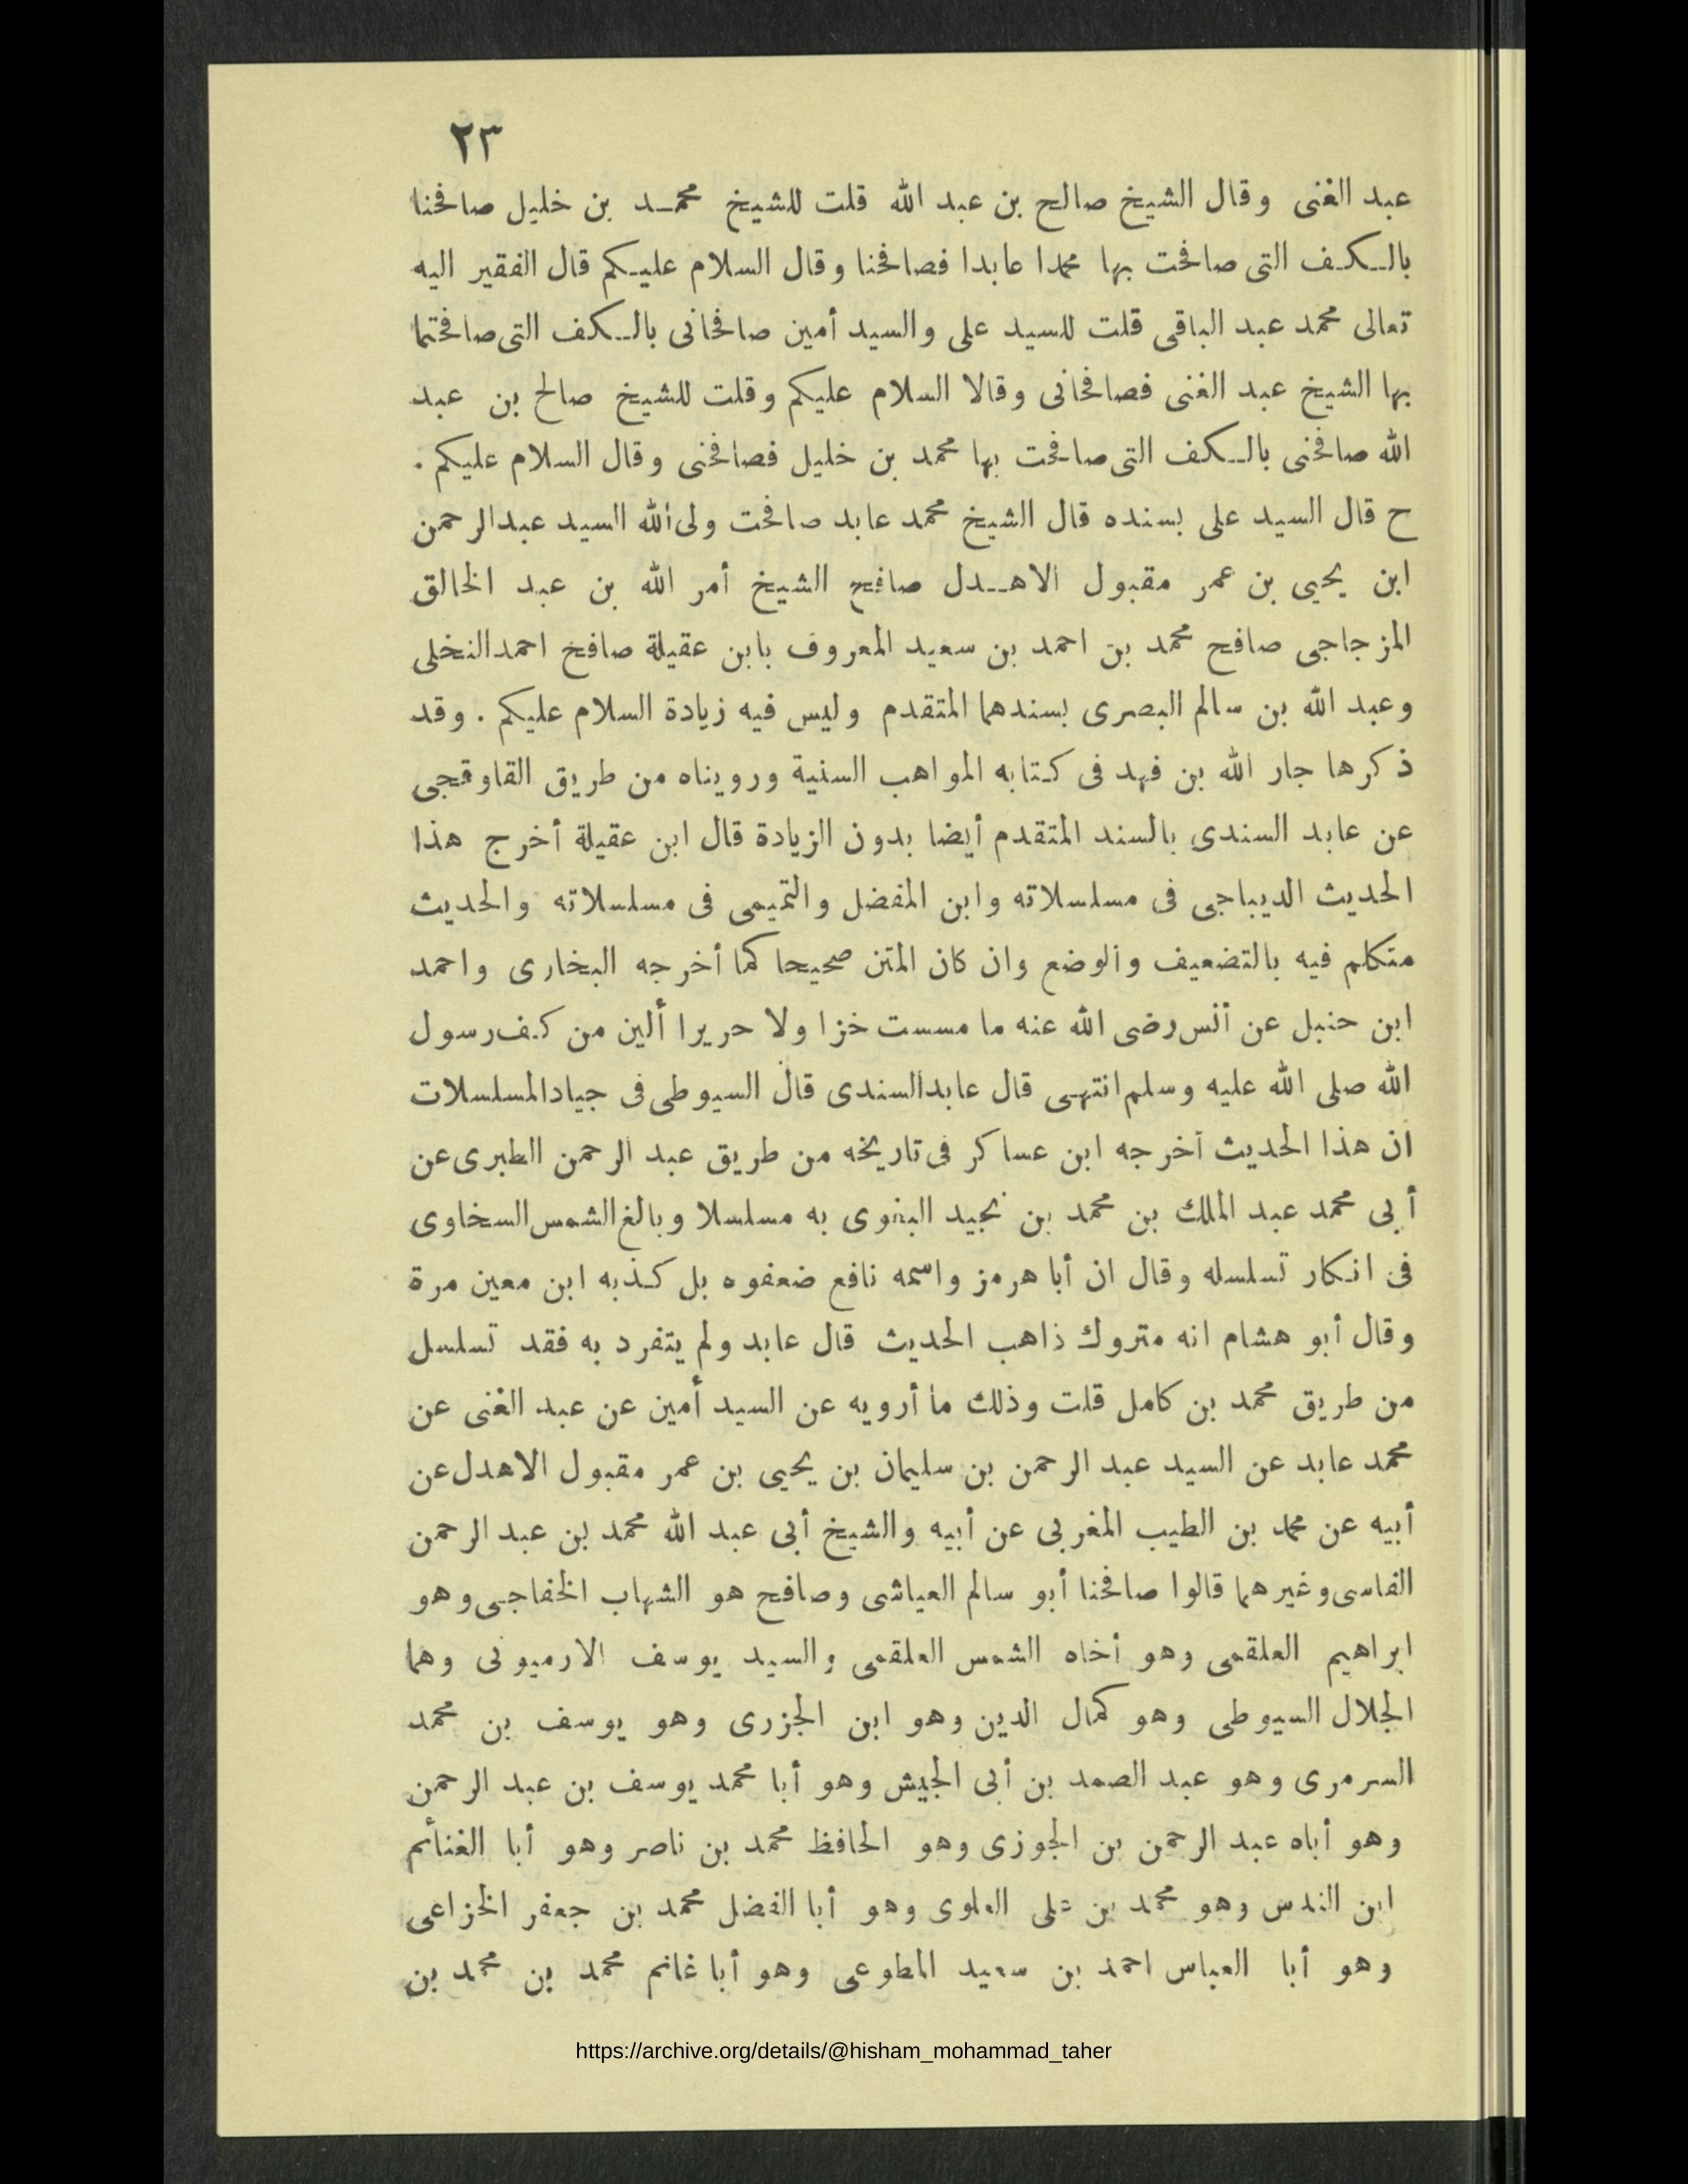 ٢٣
عبد الغنى وقال الشيخ صالح بن عبد الله قلت للشيخ محمد بن خليل صافحنا
بالكف التى صافحت بها محمدا عابدا فصافحنا وقال السلام عليكم قال الفقير اليه
تعالى محمد عبد الباقى قلت للسيد على والسيد أمين صافحانى بالكف التى صافحتما
بها الشيخ عبد الغنى فصافحانى وقالا السلام عليكم وقلت للشيخ صالح بن عبد
الله صافحنى بالكف التى صافحت بها محمد بن خليل فصافحنى وقال السلام عليكم .
ح قال السيد على بسنده قال الشيخ محمد عابد صافحت ولى الله السيد عبد الرحمن
ابن يحيى بن عمر مقبول الاهدل صافح الشيخ أمر الله بن عبد الخالق
المزجاجى صافح محمد بن احمد بن سعيد المعروف بابن عقيلة صافح احمد النخلى
وعبد الله بن سالم البصرى بسندهما المتقدم وليس فيه زيادة السلام عليكم . وقد
ذكرها جار الله بن فهد فى كتابه المواهب السنية ورويناه من طريق القاوقجى
عن عابد السندى بالسند المتقدم أيضا بدون الزيادة قال ابن عقيلة أخرج هذا
الحديث الديباجى فى مسلسلاته وابن المفضل والتميمى فى مسلسلاته والحديث
متكلم فيه بالتضعيف والوضع وان كان المتن صحيحا كما أخرجه البخارى واحمد
ابن حنبل عن أنس رضى الله عنه ما مسست خزا ولا حريرا ألين من كف رسول
الله صلى الله عليه وسلم انتهى قال عابد السندى قال السيوطى فى جياد المسلسلات
ان هذا الحديث أخرجه ابن عساكر فى تاريخه من طريق عبد الرحمن الطبرى عن
أبى محمد عبد الملك بن محمد بن نجيد البغوى به مسلسلا وبالغ الشمس السخاوى
فى انكار تسلسله وقال ان أبا هرمز واسمه نافع ضعفوه بل كذبه ابن معين مرة
وقال أبو هشام انه متروك ذاهب الحديث قال عابد ولم يتفرد به فقد تسلسل
من طريق محمد بن كامل قلت وذلك ما أرويه عن السيد أمين عن عبد الغنى عن
محمد عابد عن السيد عبد الرحمن بن سليمان بن يحيى بن عمر مقبول الاهدل عن
أبيه عن محمد بن الطيب المغربى عن أبيه والشيخ أبى عبد الله محمد بن عبد الرحمن
الفاسى وغيرهما قالوا صافحنا أبو سالم العياشى وصافح هو الشهاب الخفاجى وهو
ابراهيم العلقمى وهو أخاه الشمس العلقمى والسيد يوسف الارميونى وهما
الجلال السيوطى وهو كمال الدين وهو ابن الجزرى وهو يوسف بن محمد
السرمرى وهو عبد الصمد بن أبى الجيش وهو أبا محمد يوسف بن عبد الرحمن
وهو أباه عبد الرحمن بن الجوزى وهو الحافظ محمد بن ناصر وهو أبا الغنائم
ابن الندس وهو محمد بن على العلوى وهو أبا الفضل محمد بن جعفر الخزاعى
وهو أبا العباس احمد بن سعيد المطوعى وهو أبا غانم محمد بن محمد بن
https://archive.org/details/@hisham_mohammad_taher